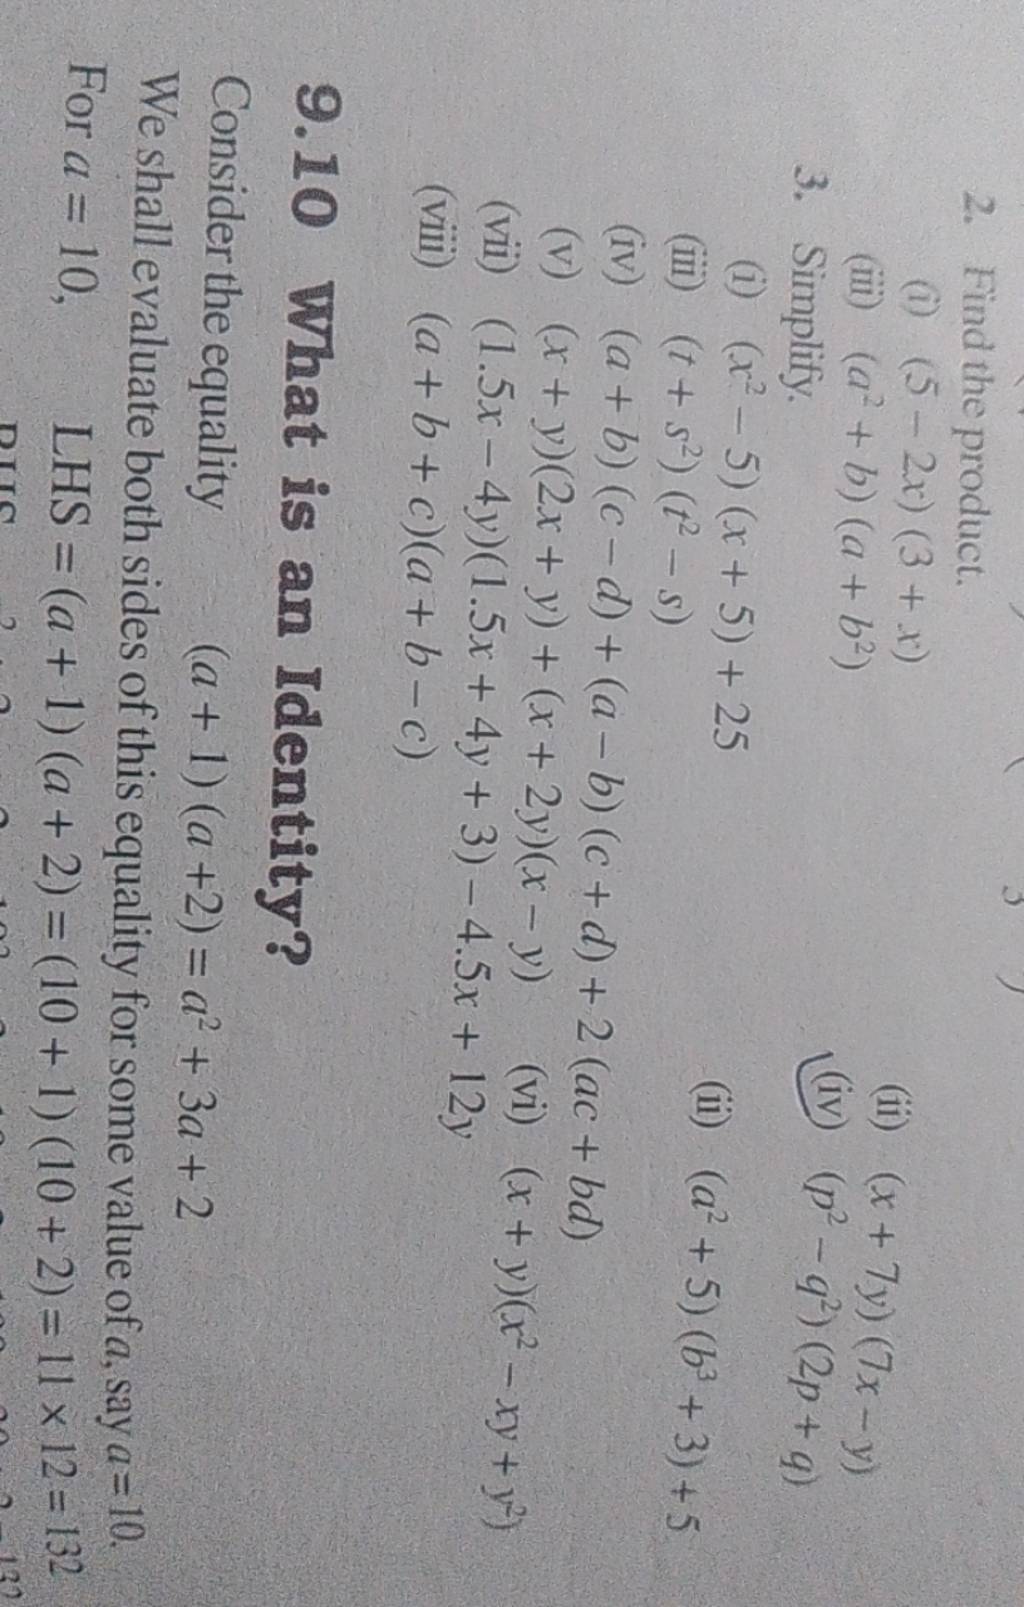 2. Find the product.
(i) (5 – 2x) (3 + x) (ii) (x + 7y) (7x – y)
(iii) (a² + b) (a + b²) (iv) (p² – q²) (2p + q)
3. Simplify.
(i) (x² – 5) (x + 5) + 25 (ii) (a² + 5) (b³ + 3) + 5
(iii) (t + s²) (t² – s)
(iv) (a + b) (c – d) + (a – b) (c + d) + 2 (ac + bd)
(v) (x + y)(2x + y) + (x + 2y)(x – y) (vi) (x + y)(x² – xy + y²)
(vii) (1.5x – 4y)(1.5x + 4y + 3) – 4.5x + 12y
(viii) (a + b + c)(a + b – c)
9.10 What is an Identity?
Consider the equality (a + 1) (a +2) = a² + 3a + 2
We shall evaluate both sides of this equality for some value of a, say a = 10.
For a = 10, LHS = (a + 1) (a + 2) = (10 + 1) (10 + 2) = 11 × 12 = 132